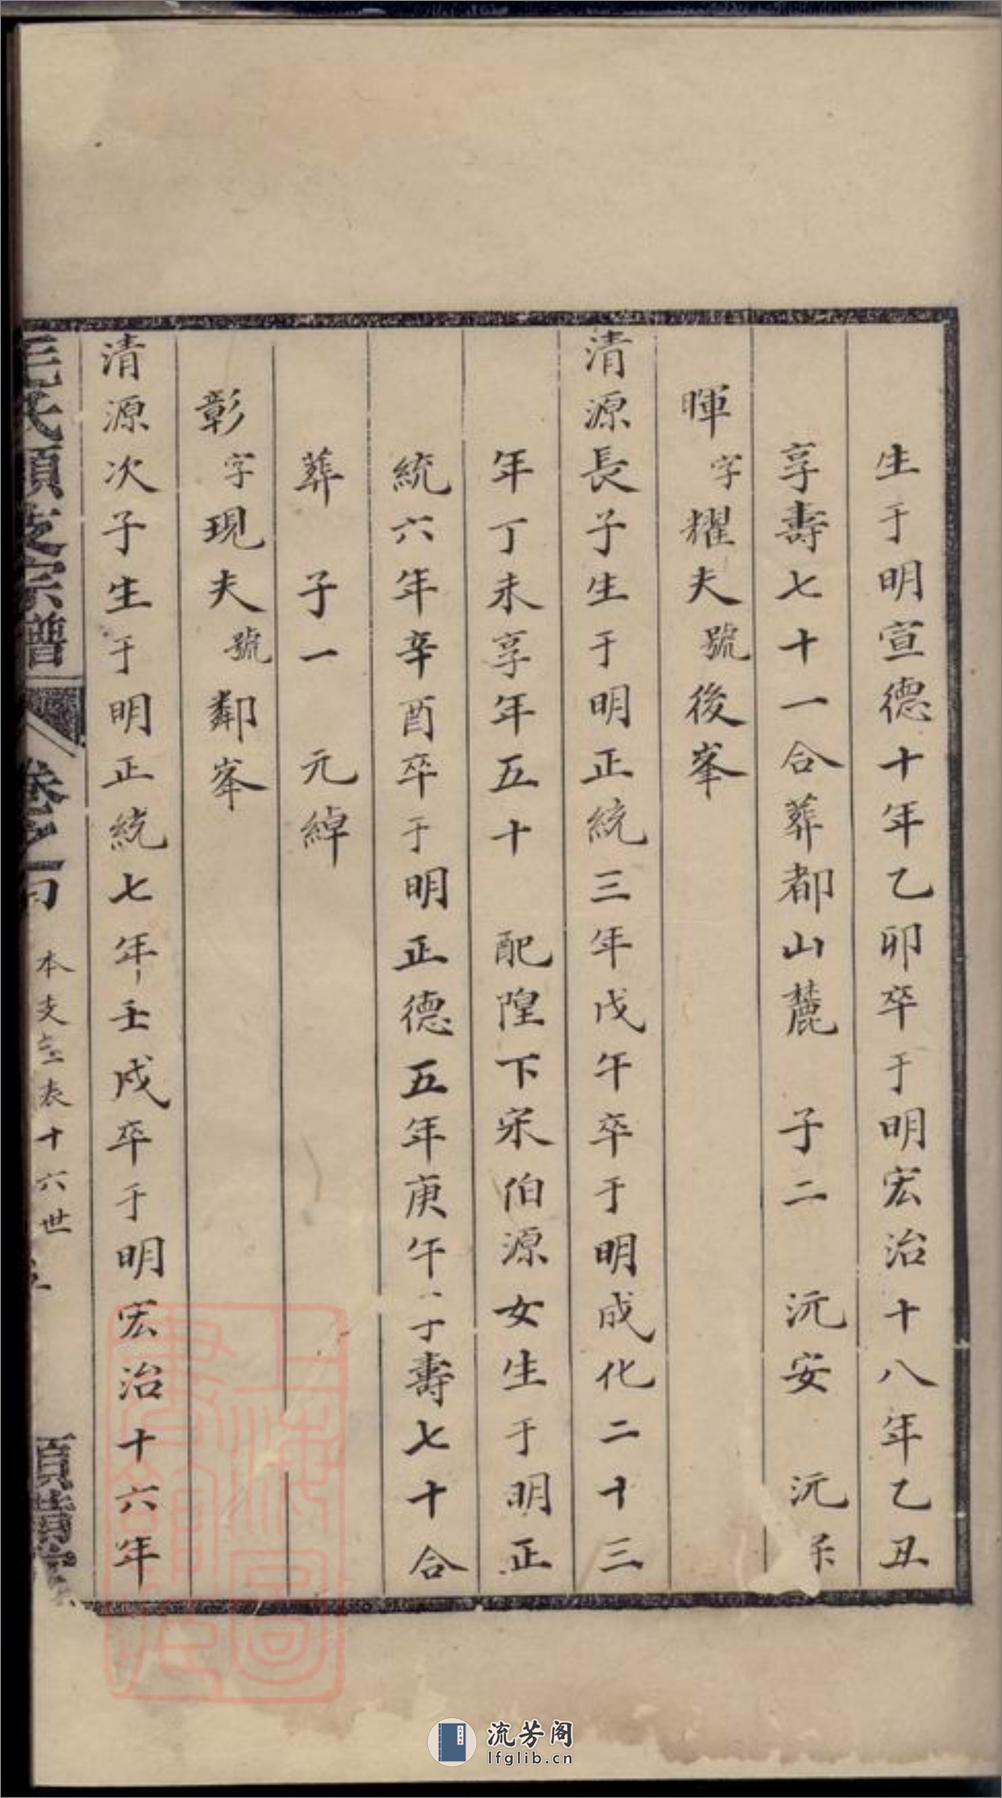 生于明宣德十年乙卯卒于明宏治十八年乙丑
享壽七十一合葬都山麓 子二 沅安 沅
暉字耀夫號後峯
清源長子生于明正統三年戊午卒于明成化二十三
年丁未享年五十 配隍下宋伯源女生于明正
統六年辛酉卒于明正德五年庚午 壽七十合
葬 子一 元綽
彰字現夫號鄰峯
清源次子生于明正統七年壬戌卒于明宏治十六年
氏 支宗譜 卷之 本支 表十六世
上海圖書館藏
流芳阁
lfglib.cn